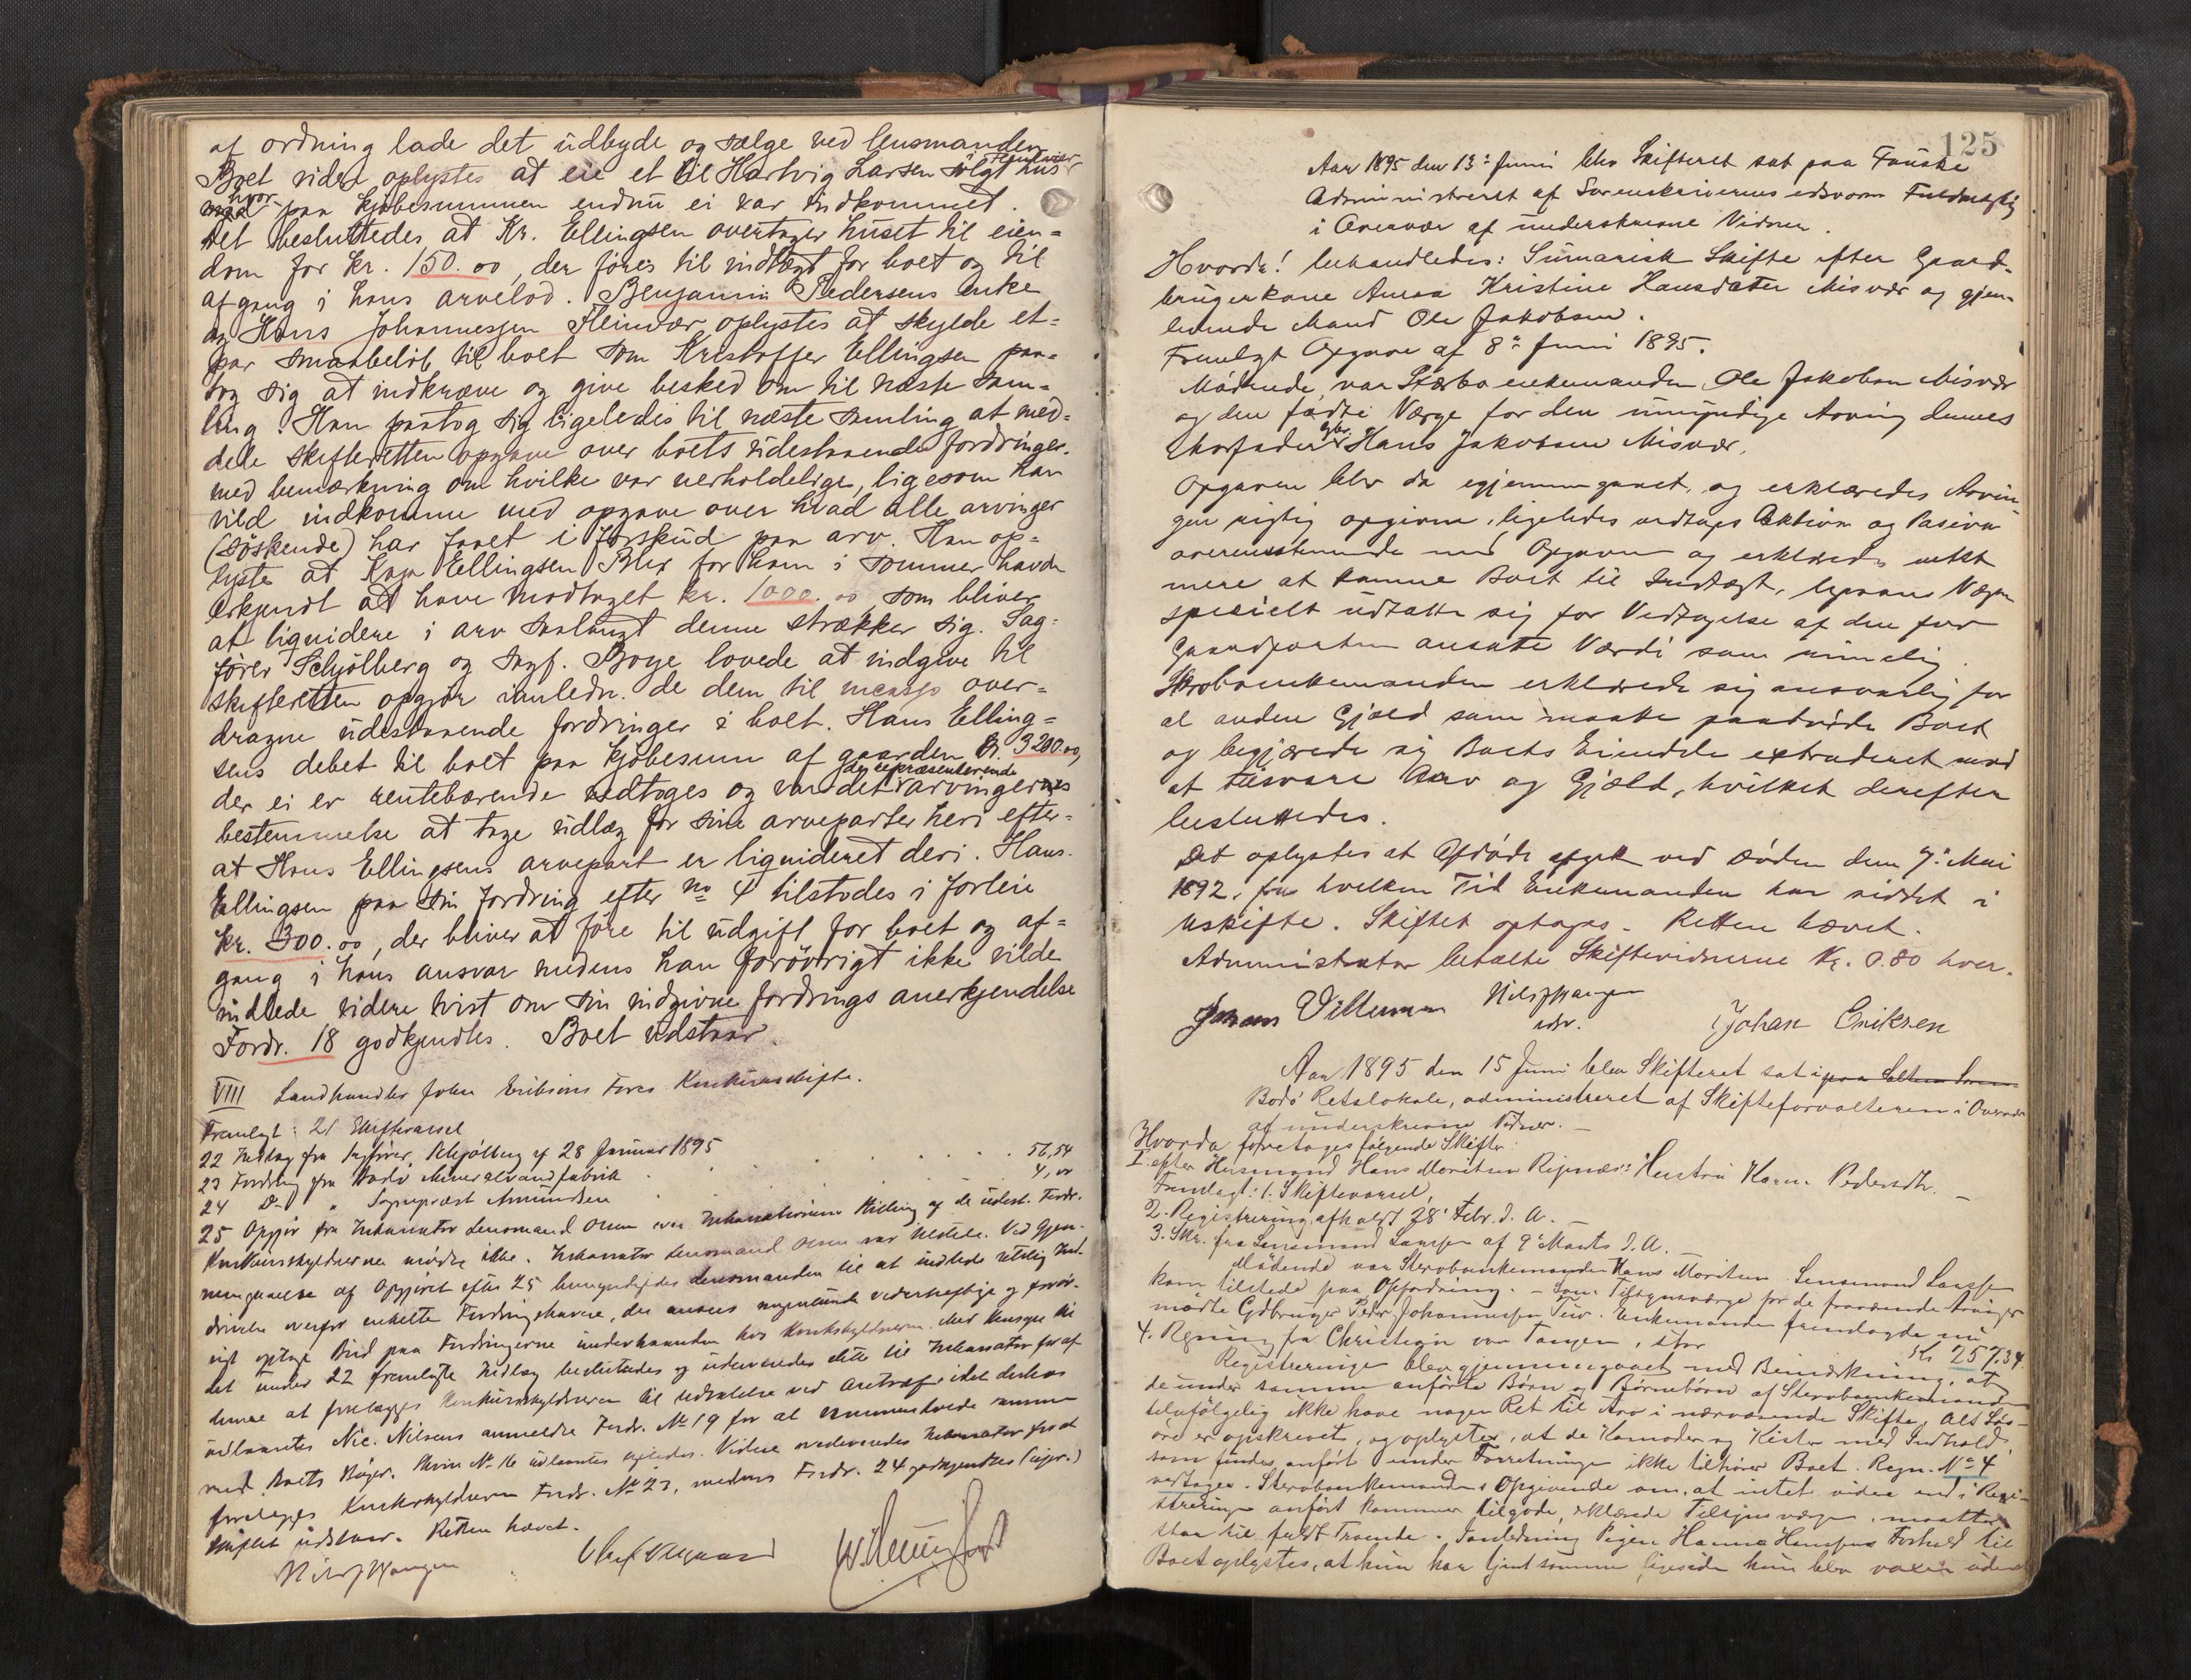 af ordning lade det udbyde og sælge ved lensmanden
Boet videre oplystes at eie et til Hartvig Larsen solgt hus
hvor paa kjøbesummen endnu ei var indkommet.
Det besluttedes at Kr. Ellingsen overtager huset til eien=
dom for kr. 150.00, der føres til indtægt for boet og til
afgang i hans arvelod. Benjamin Pedersens enke
og Hans Johannessen Fleinvær oplystes at skylde et=
par smaabeløb til boet som Kristoffer Ellingsen paa=
tog sig at indkræve og give besked om til næste sam=
ling. Han paatog sig ligeledes til næste samling at med=
dele skifteretten opgave over boets udestaaende fordringer.
med bemærkning om hvilke var uerholdelige, ligesom han
vild indkomme med opgave over hvad alle arvinger
(søskende) har faaet i forskud paa arv. Han op=
lyste at Kaja Ellingsen Blix for ham i sommer havde
erkjendt at have modtaget kr. 1000.00 som bliver
at liqvidere i arv saalangt denne strækker sig. Sag=
fører Schjølberg og sagf. Boye lovede at indgive til
skifteretten opgjør i anledn. de dem til incasso over=
dragne udestaaende fordringer i boet. Hans Elling=
sens debet til boet paa kjøbesum af gaarden kr. 3200.00,
der ei er rentebærende vedtoges og var det de repræsenterende arvingers
bestemmelse at tage udlæg for sine arveparter heri efter=
at Hans Ellingsens arvepart er liqvideret deri. Hans
Ellingsen paa sin fordring efter no 4 tilstodes i forleie
kr. 300.00, der bliver at føre til udgift for boet og af=
gang i hans ansvar medens han forøvrigt ikke vilde
indlede videre tvist om sin indgivne fordrings anerkjendelse
Fordr. 18 godkjendtes. Boet udstaar.
VIII Landhandler Johan Eriksens Fores Konkursskifte.
Fremlagt: 21 Skiftevarsel
22 Indlæg fra Sagfører Schjølberg af 28 Januar 1895 56,54
23 Fordring fra Bodø Mineralvandfabrik 4,00
24 Do " Sogneprest Amundsen
25 Opgjør fra Inkassator Lensmand Olsen over Inkassationens Stilling af de udest. Fordr.
Konkursskyldneren mødte ikke. Inkassator Lensmand Olsen var tilstede. Ved Gjen-
nemgaaelse af Opgjøret efter 25 bemyndigedes lensmanden til at indlede retslig Ind-
drivelse overfor enkelte Fordringshavere, der ansees nogenlunde vederheftige og forøv-
rigt optage Bud paa Fordringerne underhaanden hos Konkskyldneren. Med Hensyn til
det under 22 fremlagte Indlæg besluttedes og udleveredes dette til Inkassator for af
denne at forelægges Konkursskyldneren til Udtalelse ved
udlaantes Nic. Nilsens anmeldte Fordr. No 19 for at sammenholde samme
med Boets Bøger. Skriv No 16 udlaantes ligeledes. Videre overleveredes Inkassator for at
forelægges Konkurskyldneren Fordr. No 23, medens Fordr. 24 godkjendtes (upr.)
Skiftet udstaar. Retten hævet.
Nils J Wangen

125
Aar 1895 den 13de Juni blev Skifteret sat paa Fauske
Administreret af Sorenskriverens edsvorne Fuldmægtig
i Overvær af underskrevne Vidner.
Hvorda! behandledes: Sumarisk Skifte efter Gaard-
brugerkone Anna Kristine Hansdatter Misvær og gjen-
levende Mand Ole Jakobsen.
Fremlagt Opgave af 8de Juni 1895.
Mødende var Stærboenkemanden Ole Jakobsen Misvær
og den fødte Værge for den umyndige Arving dennes
Morfader gbr. Hans Jakobsen Misvær.
Opgaven blev da igjennemgaaet, og erklæredes Arvin-
gen rigtig opgiven, ligeledes vedtages Aktiva og Pasiva
overensstemmende med Opgaven og erklæredes intet
mere at komme Boet til Indtægt, ligesom Værgen
specielt udtalte sig for Vedtagelse af den for
Gaardparten ansatte Værdi som rimelig.
Sterboenkemanden erklærede sig ansvarlig for
al anden Gjæld som maatte paahvile Boet
og begjærede sig Boets Eiendele extraderet mod
at tilsvare Arv og Gjæld, hvilket derefter
besluttedes.
Det oplystes at Afdøde afgik ved Døden den 7de Mai
1892, fra hvilken Tid Enkemanden har siddet i
Uskifte. Skiftet optages. Retten hævet.
Administrator betalte Skiftevidnerne Kr. 0.80 hver.
Johan Villumsen Nils J Wangen Johan Eriksen
edsv.
Aar 1895 den 15 Juni blev Skifteret sat i paa Salten Soren
Bodø Retslokale, administreret af Skifteforvalteren i Overvær
af underskrevne Vidner.
Hvorda foretages følgende Skifter:
I. efter Husmand Hans Moritsen Hustru Karen Pedersdtr.
Fremlagt: 1. Skiftevarsel,
2. Registrering afholdt 28' Febr. d. A.
3. Skr. fra Lensmand Larssen af 9' Marts d. A.
Mødende var Sterboenkemanden Hans Moritsen. Lensmand Larssen
kom tilstede paa Opfordring. - Som Tilsynsværge for de fraværende Arvinger
mødte Gdbruger Peder Johannessen Tuv. Enkemanden fremlagde nu
4. Regning fra Christian van Tangen, stor Kr 257.34.
Registreringen blev gjennemgaaet med Bemærkning, at
de under samme anførte Børn og Børnebørn af Sterboenkemanden
selvfølgelig ikke have nogen Ret til Arv i nærværende Skifte. Alt Løs-
øre er opskrevet, og oplystes, at de Komoder og Kister med Indhold,
som findes anført under Forretningen ikke tilhører Boet. Regn. No 4
vedtages. Sterboenkemandens Opgivende om, at intet videre end i Regi-
streringen anført kommer tilgode, erklærede Tilsynsværgen, maatte
staa til fuldt Troende. I anledning Pigen Hanna Hansens Forhold til
Boet oplystes, at hun har tjent samme ligesiden hun blev voxen uden